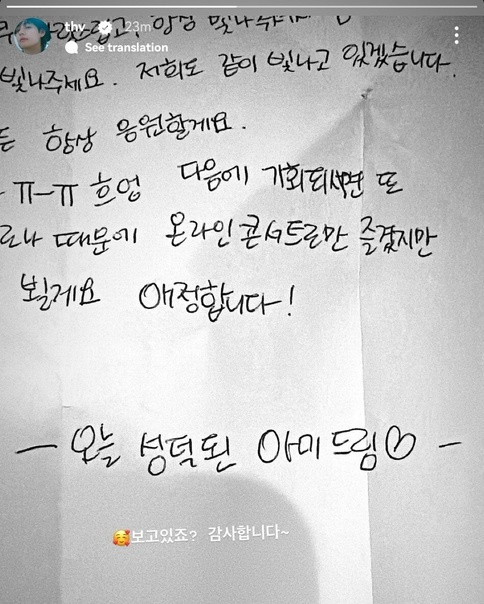 thv 23m
See translation
빛나주세요. 저희도 같이 빛나고 있겠습니다.
든 항상 응원할게요.
ㅠ-ㅠ 흐엉 다음에 기회되시면 또
로나 때문에 온라인콘서트로만 즐겼지만
뵐게요 애정합니다!
- 오늘 성덕된 아미 드림♡ -
🥰보고있죠? 감사합니다~